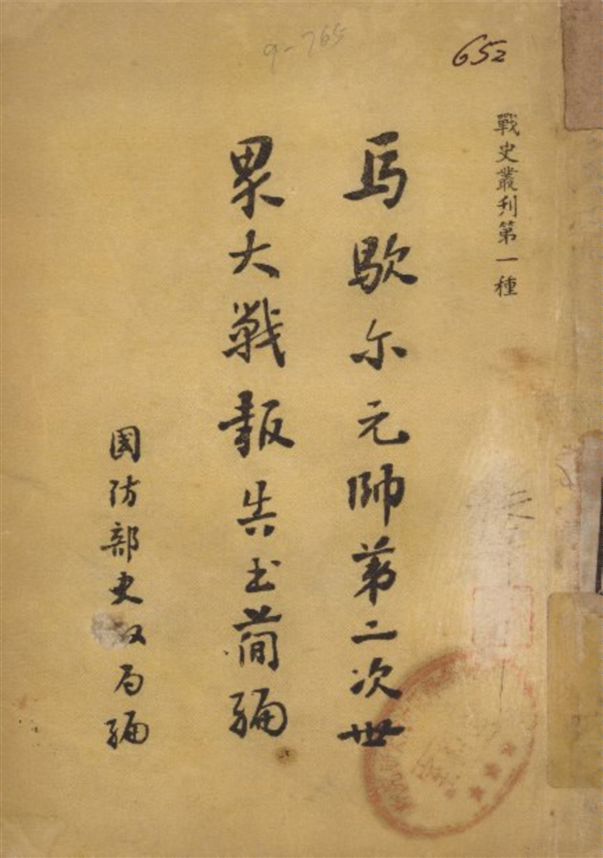 9-765
652
戰史叢刊第一種
馬歇尔元帥第二次世
界大戰報告书简編
国防部史政局編